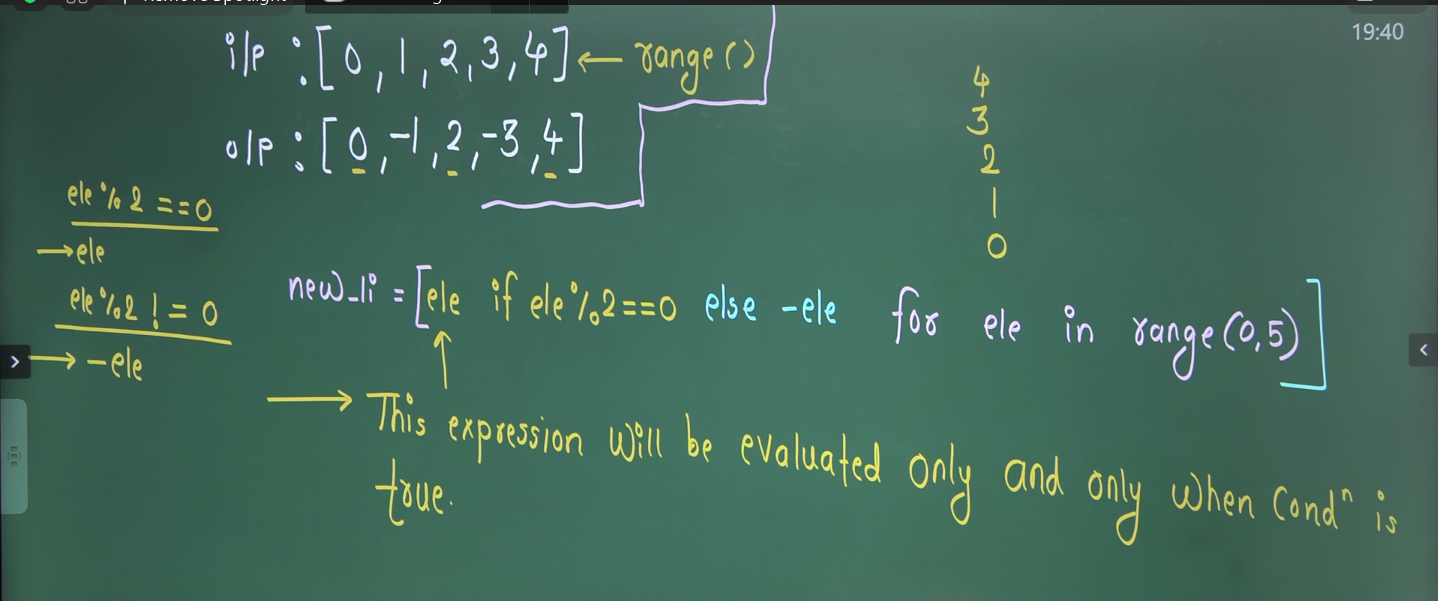 19:40
i/p : [0, 1, 2, 3, 4] ← range()
o/p : [0, -1, 2, -3, 4]
4
3
2
1
0
ele % 2 == 0
→ ele
ele % 2 != 0
→ -ele
new_li = [ele if ele % 2 == 0 else -ele for ele in range(0,5)]
→ This expression will be evaluated only and only when Condⁿ is
true.